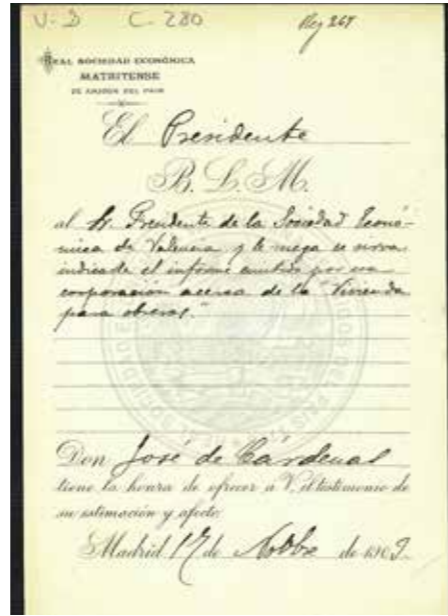 V-3 C-280
Reg 267
REAL SOCIEDAD ECONÓMICA
MATRITENSE
DE AMIGOS DEL PAIS
El Presidente
B. L. M.
al Sr. Presidente de la Sociedad Econó-
mica de Valencia y le ruega se sirva
indicarle el informe emitido por esa
corporación acerca de la "Vivienda
para obreros."
Don José de Cárdenas
tiene la honra de ofrecer a V. el testimonio de
su estimación y afecto.
Madrid 17 de Nobbe de 1909.